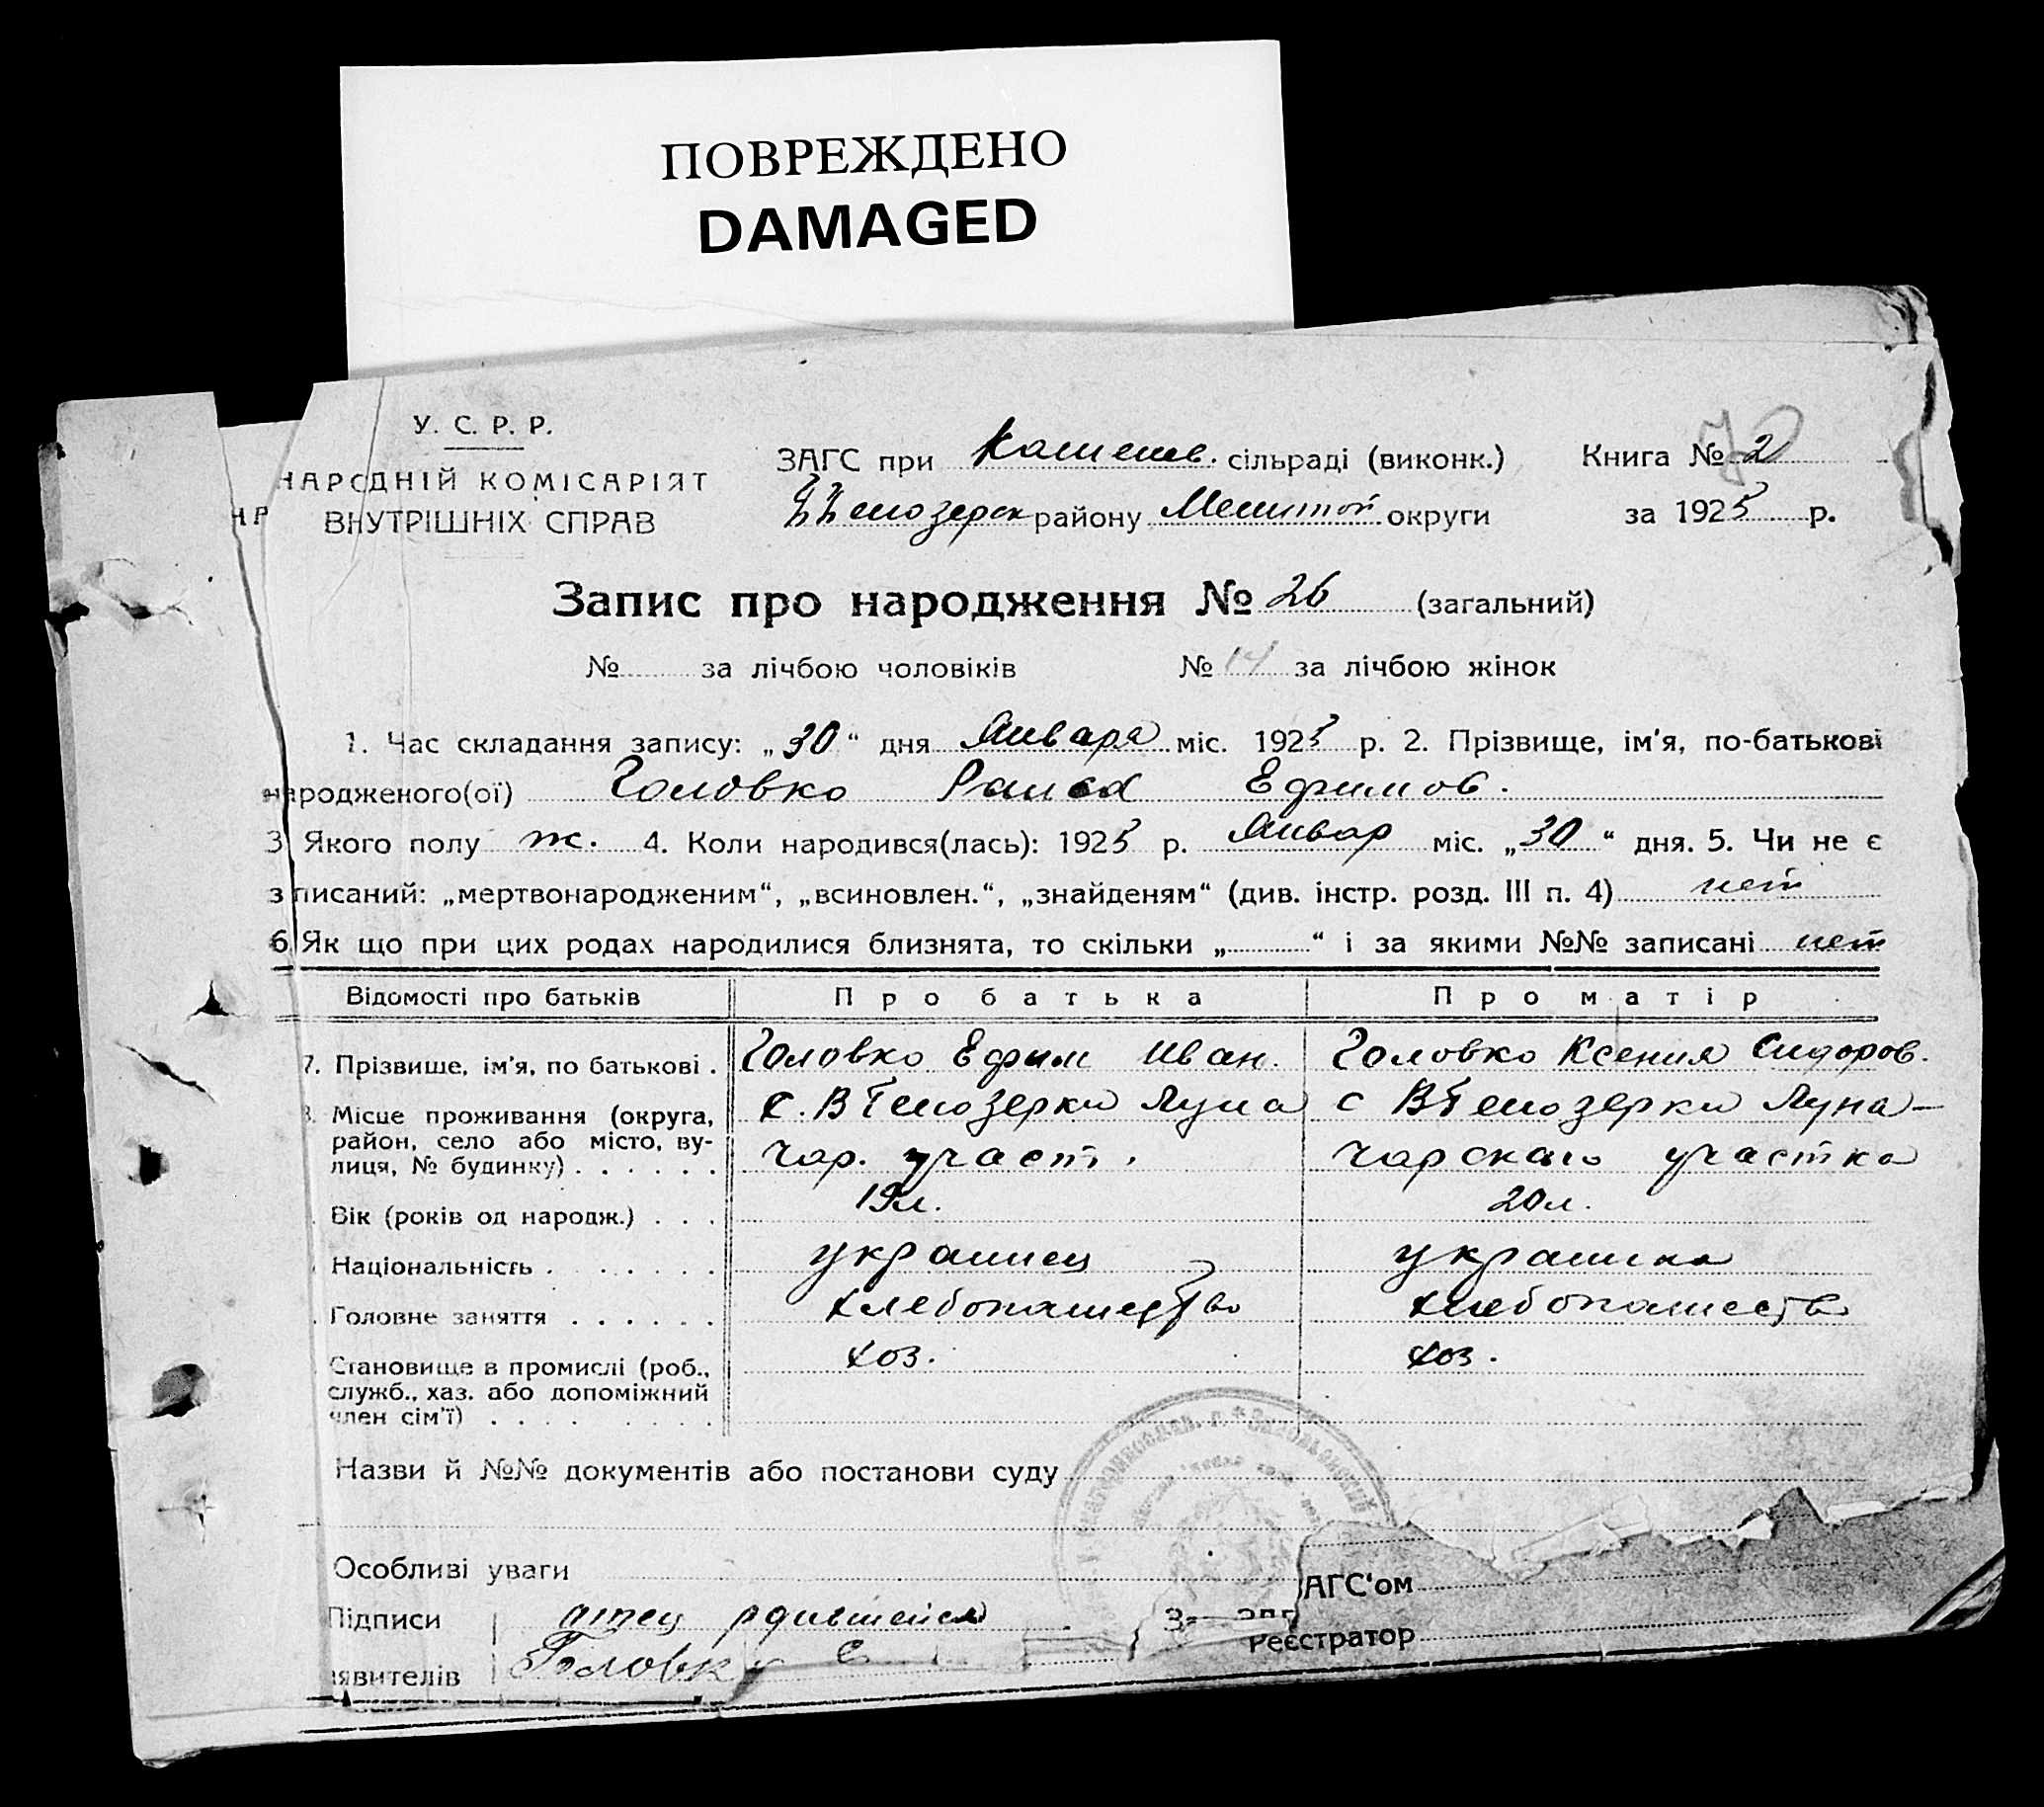 ПОВРЕЖДЕНО
DAMAGED
У. С. Р. Р.
НАРОДНІЙ КОМІСАРІЯТ
ВНУТРІШНІХ СПРАВ
НА
ЗАГС при сільраді (виконк.) Книга № 2
району округи за 1925 р.
70
Запис про народження № 26 (загальний)
№ за лічбою чоловіків № 14 за лічбою жінок
1. Час складання запису: „30“ дня Января міс. 1925 р. 2. Прізвище, ім'я, по-батькові
народженого(ої) Головко Раиса Ефимов.
3 Якого полу ж. 4. Коли народився(лась): 1925 р. Январ міс. „30“ дня. 5. Чи не є
з писаний: „мертвонародженим“, „всиновлен.“, „знайденям“ (див. інстр. розд. III п. 4) нет
6 Як що при цих родах народилися близнята, то скільки „ “ і за якими №№ записані нет
Відомості про батьків Про батька Про матір
7. Прізвише, ім'я, по батькові . Головко Ефим Иван. Головко Ксения Сидоров.
Місце проживання (округа, район, село або місто, вулиця, № будинку) . . . . . . с. ВБелозерки Луна с ВБелозерки Луна-
чар. участ. чарскаго участка
Вік (років од народж.) . . . 19 л. 20 л.
Національність . . . . . . украинец украинка
Головне заняття . . . . . . хлебопашество хлебопашество
Становище в промислі (роб., служб., хаз. або допоміжний член сім'ї) . . . . . . . . хоз. хоз.
Назви й №№ документів або постанови суду
Особливі уваги
АГС'ом
Підписи отец
Реєстратор
явителів Головко Е